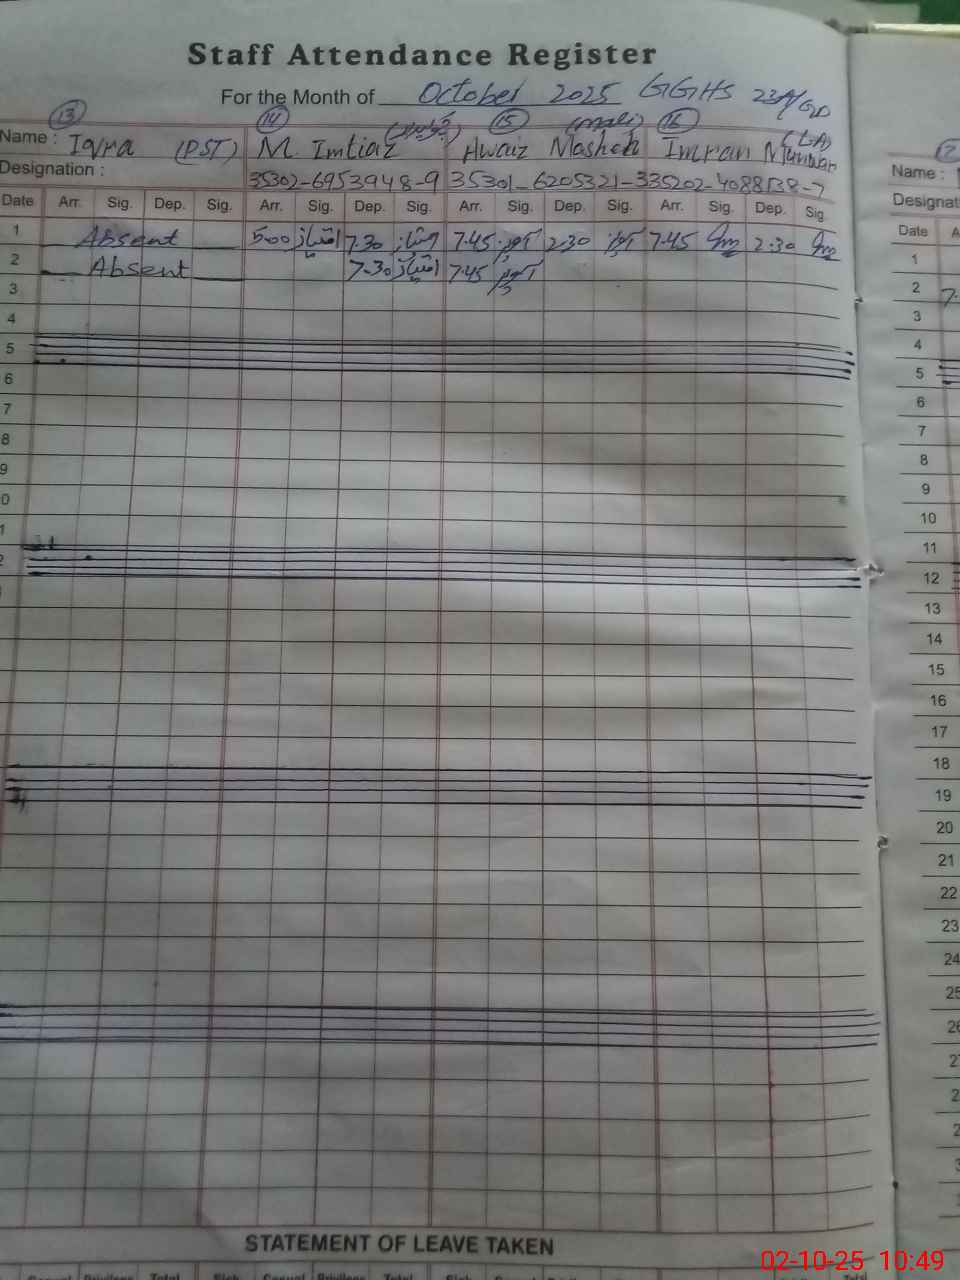 Staff Attendance Register
For the Month of October 2025 GGHS 23A/GD
13 14 15 (mali) 16 (L.A)
Name : Iqra (PST) M. Imtiaz Awaiz Masheh Imran Munwar Name :
Designation : 35302-6953948-9 35301-6205321-3 35202-4088138-7 Designat
Date Arr. Sig. Dep. Sig. Arr. Sig. Dep. Sig. Arr. Sig. Dep. Sig. Arr. Sig. Dep. Sig. Date A
1 Absent 5:00 امتیاز 7.30 امتیاز 7.45 2:30 7.45 2:30 1
2 Absent 7-30 امتیاز 7.45 2 7.
3 3
4 4
5 5
6 6
7 7
8 8
9 9
0 10
1 11
2 12
13
14
15
16
17
18
19
20
21
22
23
24
25
26
2
2
2
3
STATEMENT OF LEAVE TAKEN
Casual Privilege Total Sick Casual Privilege Total Sick
02-10-25 10:49